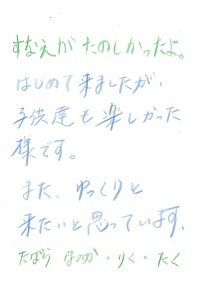 すなえが たのしかったよ。
はじめて来ましたが、
子供達も楽しかった
様です。
また、ゆっくりと
来たいと思っています、
たばら ほのか・りく・たく